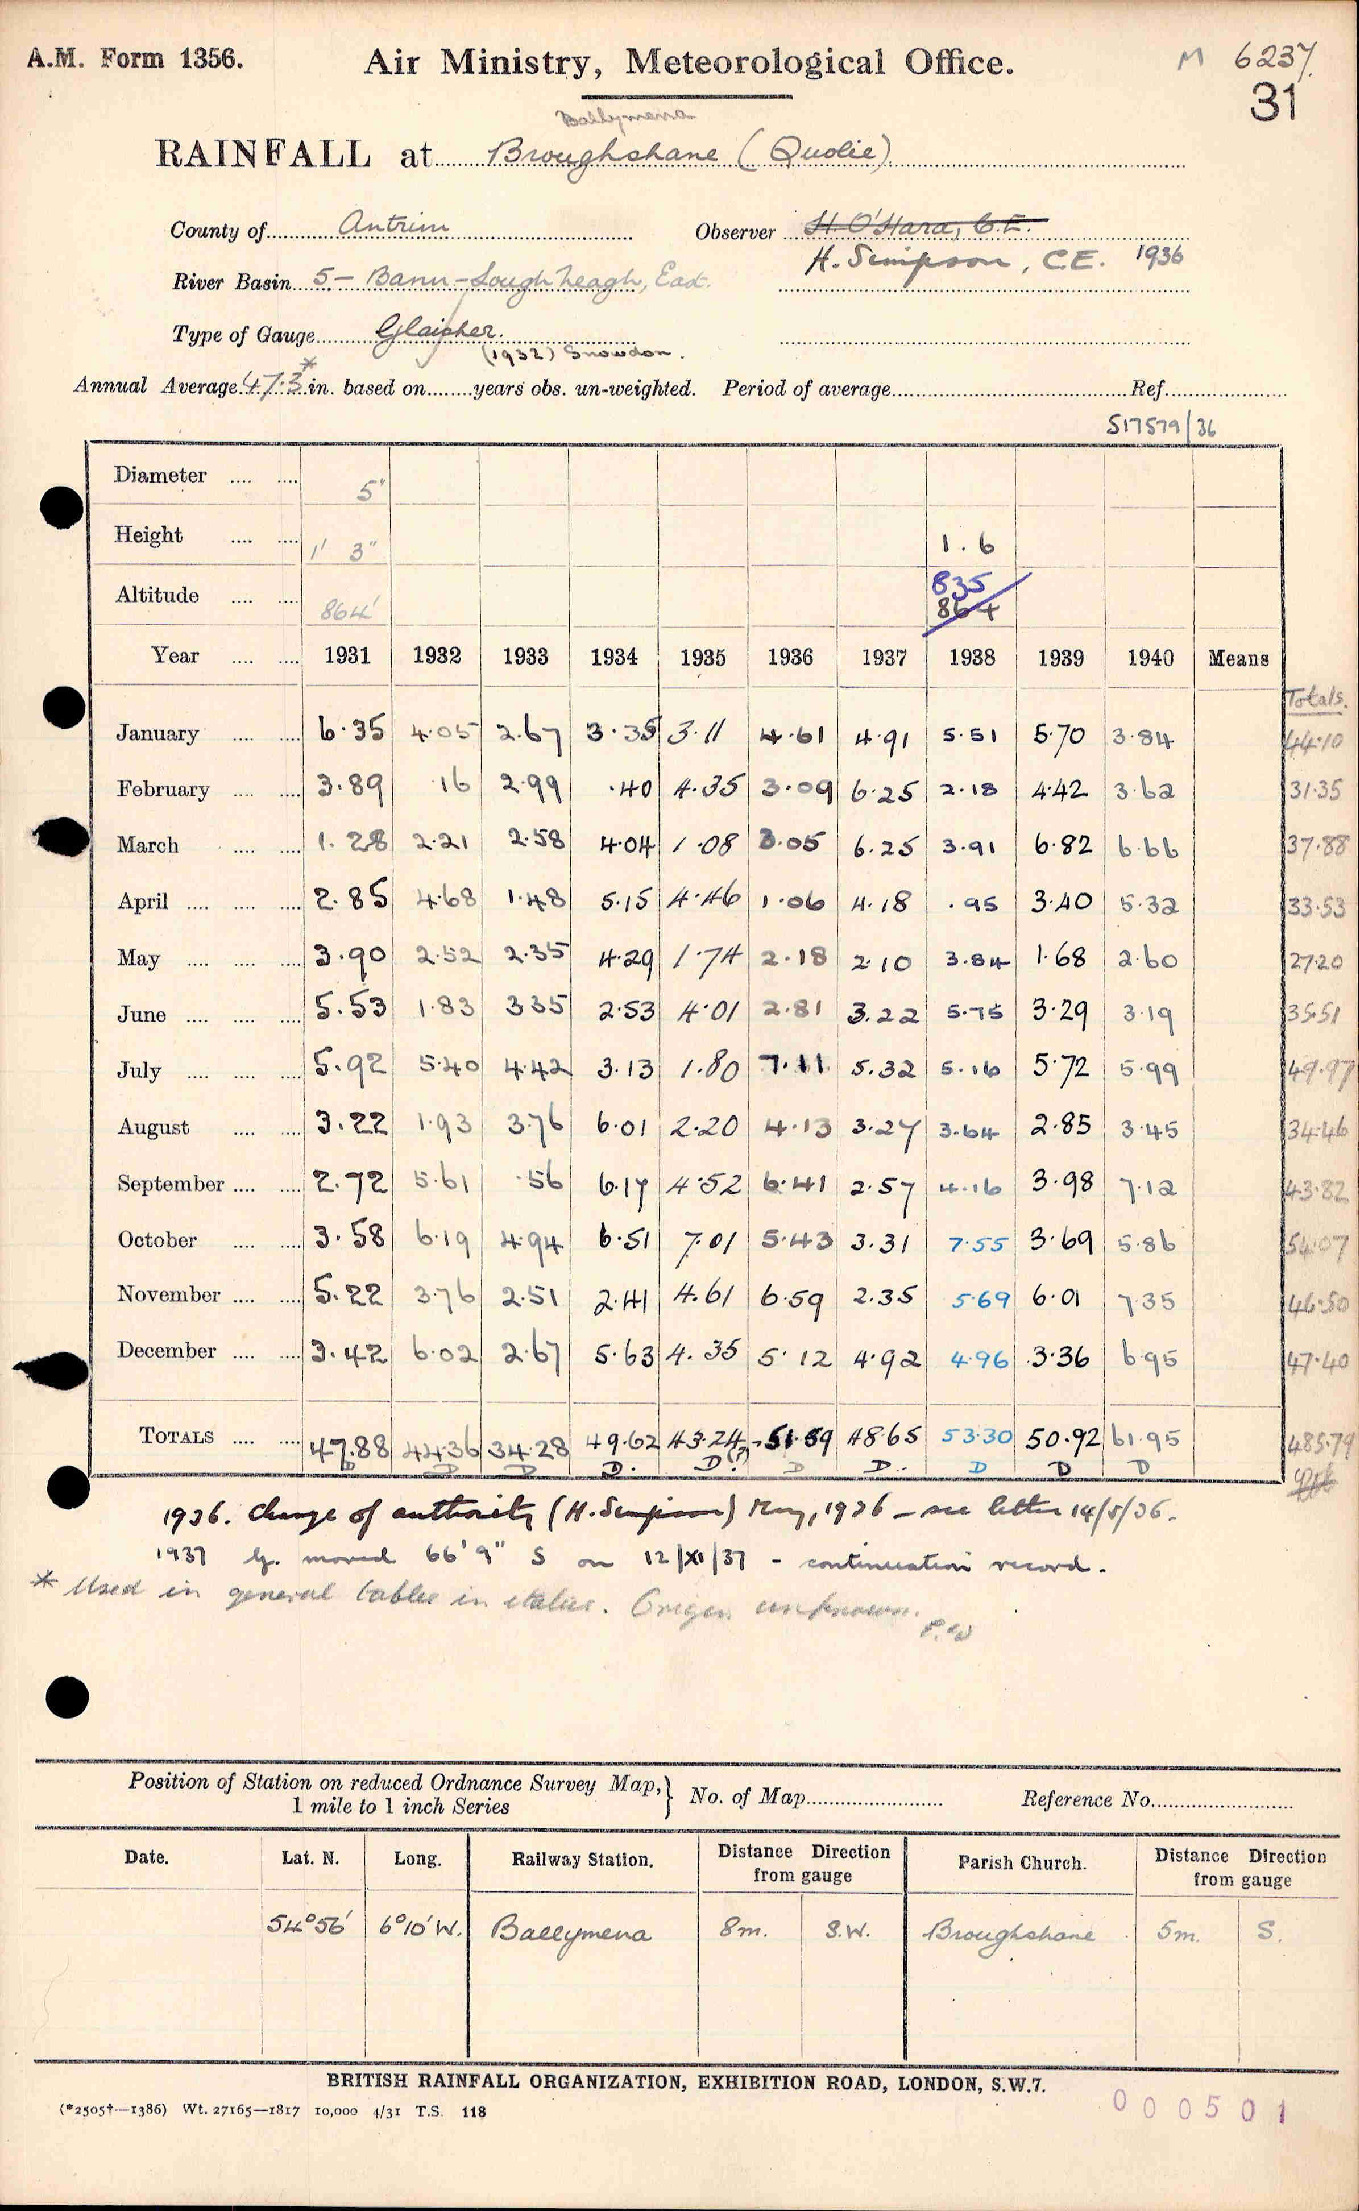 A.M. Form 1356. Air Ministry, Meteorological Office. M 6237.
31
Ballymena
RAINFALL at Broughshane (Quolie)
County of Antrim Observer H. O'Hara, C.E.
H. Simpson, C.E. 1936
River Basin 5 - Bann - Lough Neagh, East.
Type of Gauge Glaisher.
(1932) Snowdon.
Annual Average 47.3* in. based on years obs. un-weighted. Period of average Ref.
517579/36
Diameter 5"
Height 1' 3" 1.6
Altitude 864' 835 864
Year 1931 1932 1933 1934 1935 1936 1937 1938 1939 1940 Means Totals.
January 6.35 4.05 2.67 3.35 3.11 4.61 4.91 5.51 5.70 3.84 44.10
February 3.89 .16 2.99 .40 4.35 3.09 6.25 2.18 4.42 3.62 31.35
March 1.28 2.21 2.58 4.04 1.08 3.05 6.25 3.91 6.82 6.66 37.88
April 2.85 4.68 1.48 5.15 4.46 1.06 4.18 .95 3.40 5.32 33.53
May 3.90 2.52 2.35 4.29 1.74 2.18 2.10 3.84 1.68 2.60 27.20
June 5.53 1.83 3.35 2.53 4.01 2.81 3.22 5.75 3.29 3.19 35.51
July 5.92 5.40 4.42 3.13 1.80 7.11 5.32 5.16 5.72 5.99 49.97
August 3.22 1.93 3.76 6.01 2.20 4.13 3.27 3.64 2.85 3.45 34.46
September 2.72 5.61 .56 6.17 4.52 6.41 2.57 4.16 3.98 7.12 43.82
October 3.58 6.19 4.94 6.51 7.01 5.43 3.31 7.55 3.69 5.86 54.07
November 5.22 3.76 2.51 2.41 4.61 6.59 2.35 5.69 6.01 7.35 46.50
December 3.42 6.02 2.67 5.63 4.35 5.12 4.92 4.96 3.36 6.95 47.40
TOTALS 47.88 44.36 34.28 49.62 43.24 51.59 48.65 53.30 50.92 61.95 485.79
D D D D. D(?) D D. D D D
1936. Change of authority (H. Simpson) May, 1936 - see letter 14/5/36.
1937 g. moved 66' 9" S on 12/XI/37 - continuation record.
* Used in general tables in italics. Origin unknown.
P.W
Position of Station on reduced Ordnance Survey Map, } No. of Map Reference No.
1 mile to 1 inch Series
Date. Lat. N. Long. Railway Station. Distance Direction from gauge Parish Church. Distance Direction from gauge
54°56' 6°10'W. Ballymena 8m. S.W. Broughshane 5m. S.
BRITISH RAINFALL ORGANIZATION, EXHIBITION ROAD, LONDON, S.W.7.
(*2505†—1386) Wt. 27165—1817 10,000 4/31 T.S. 118
000501